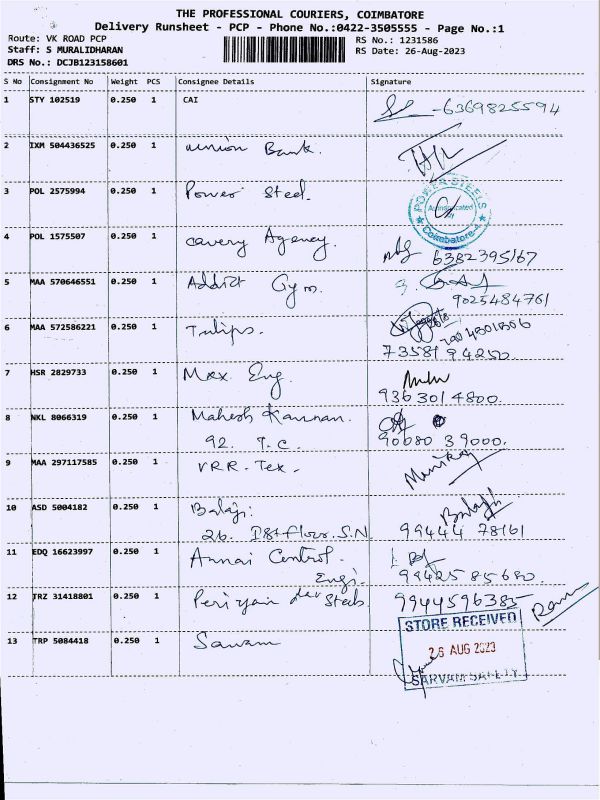 THE PROFESSIONAL COURIERS, COIMBATORE
Delivery Runsheet - PCP - Phone No.:0422-3505555 - Page No.:1
Route: VK ROAD PCP
RS No.: 1231586
Staff: S MURALIDHARAN
RS Date: 26-Aug-2023
DRS No.: DCJB123158601
S No Consignment No Weight PCS Consignee Details Signature
1 STY 102519 0.250 1 CAI -6369825594
2 IXM 504436525 0.250 1 union Bank.
3 POL 2575994 0.250 1 Power Steel.
POWER STEELS
Coimbatore-4
4 POL 1575507 0.250 1 cavery Agency.
6382395167
5 MAA 570646551 0.250 1 Addict Gym.
9025484761
6 MAA 572586221 0.250 1 Tulips.
73581 94250
7 HSR 2829733 0.250 1 Max. Eng.
936 301 4800.
8 NKL 8066319 0.250 1 Mahesh Kannan.
92. T.C. 90080 39000.
9 MAA 297117585 0.250 1 VRR. Tex. Manikaj
10 ASD 5004182 0.250 1 Balaji Balaji
26. 1st floor. S.N 99444 78161
11 EDQ 16623997 0.250 1 Annai Control.
Engi. 99425 85680.
12 TRZ 31418801 0.250 1 Steels. 9944596385
13 TRP 5084418 0.250 1
STORE RECEIVED
26 AUG 2023
SARVAM SAFETY